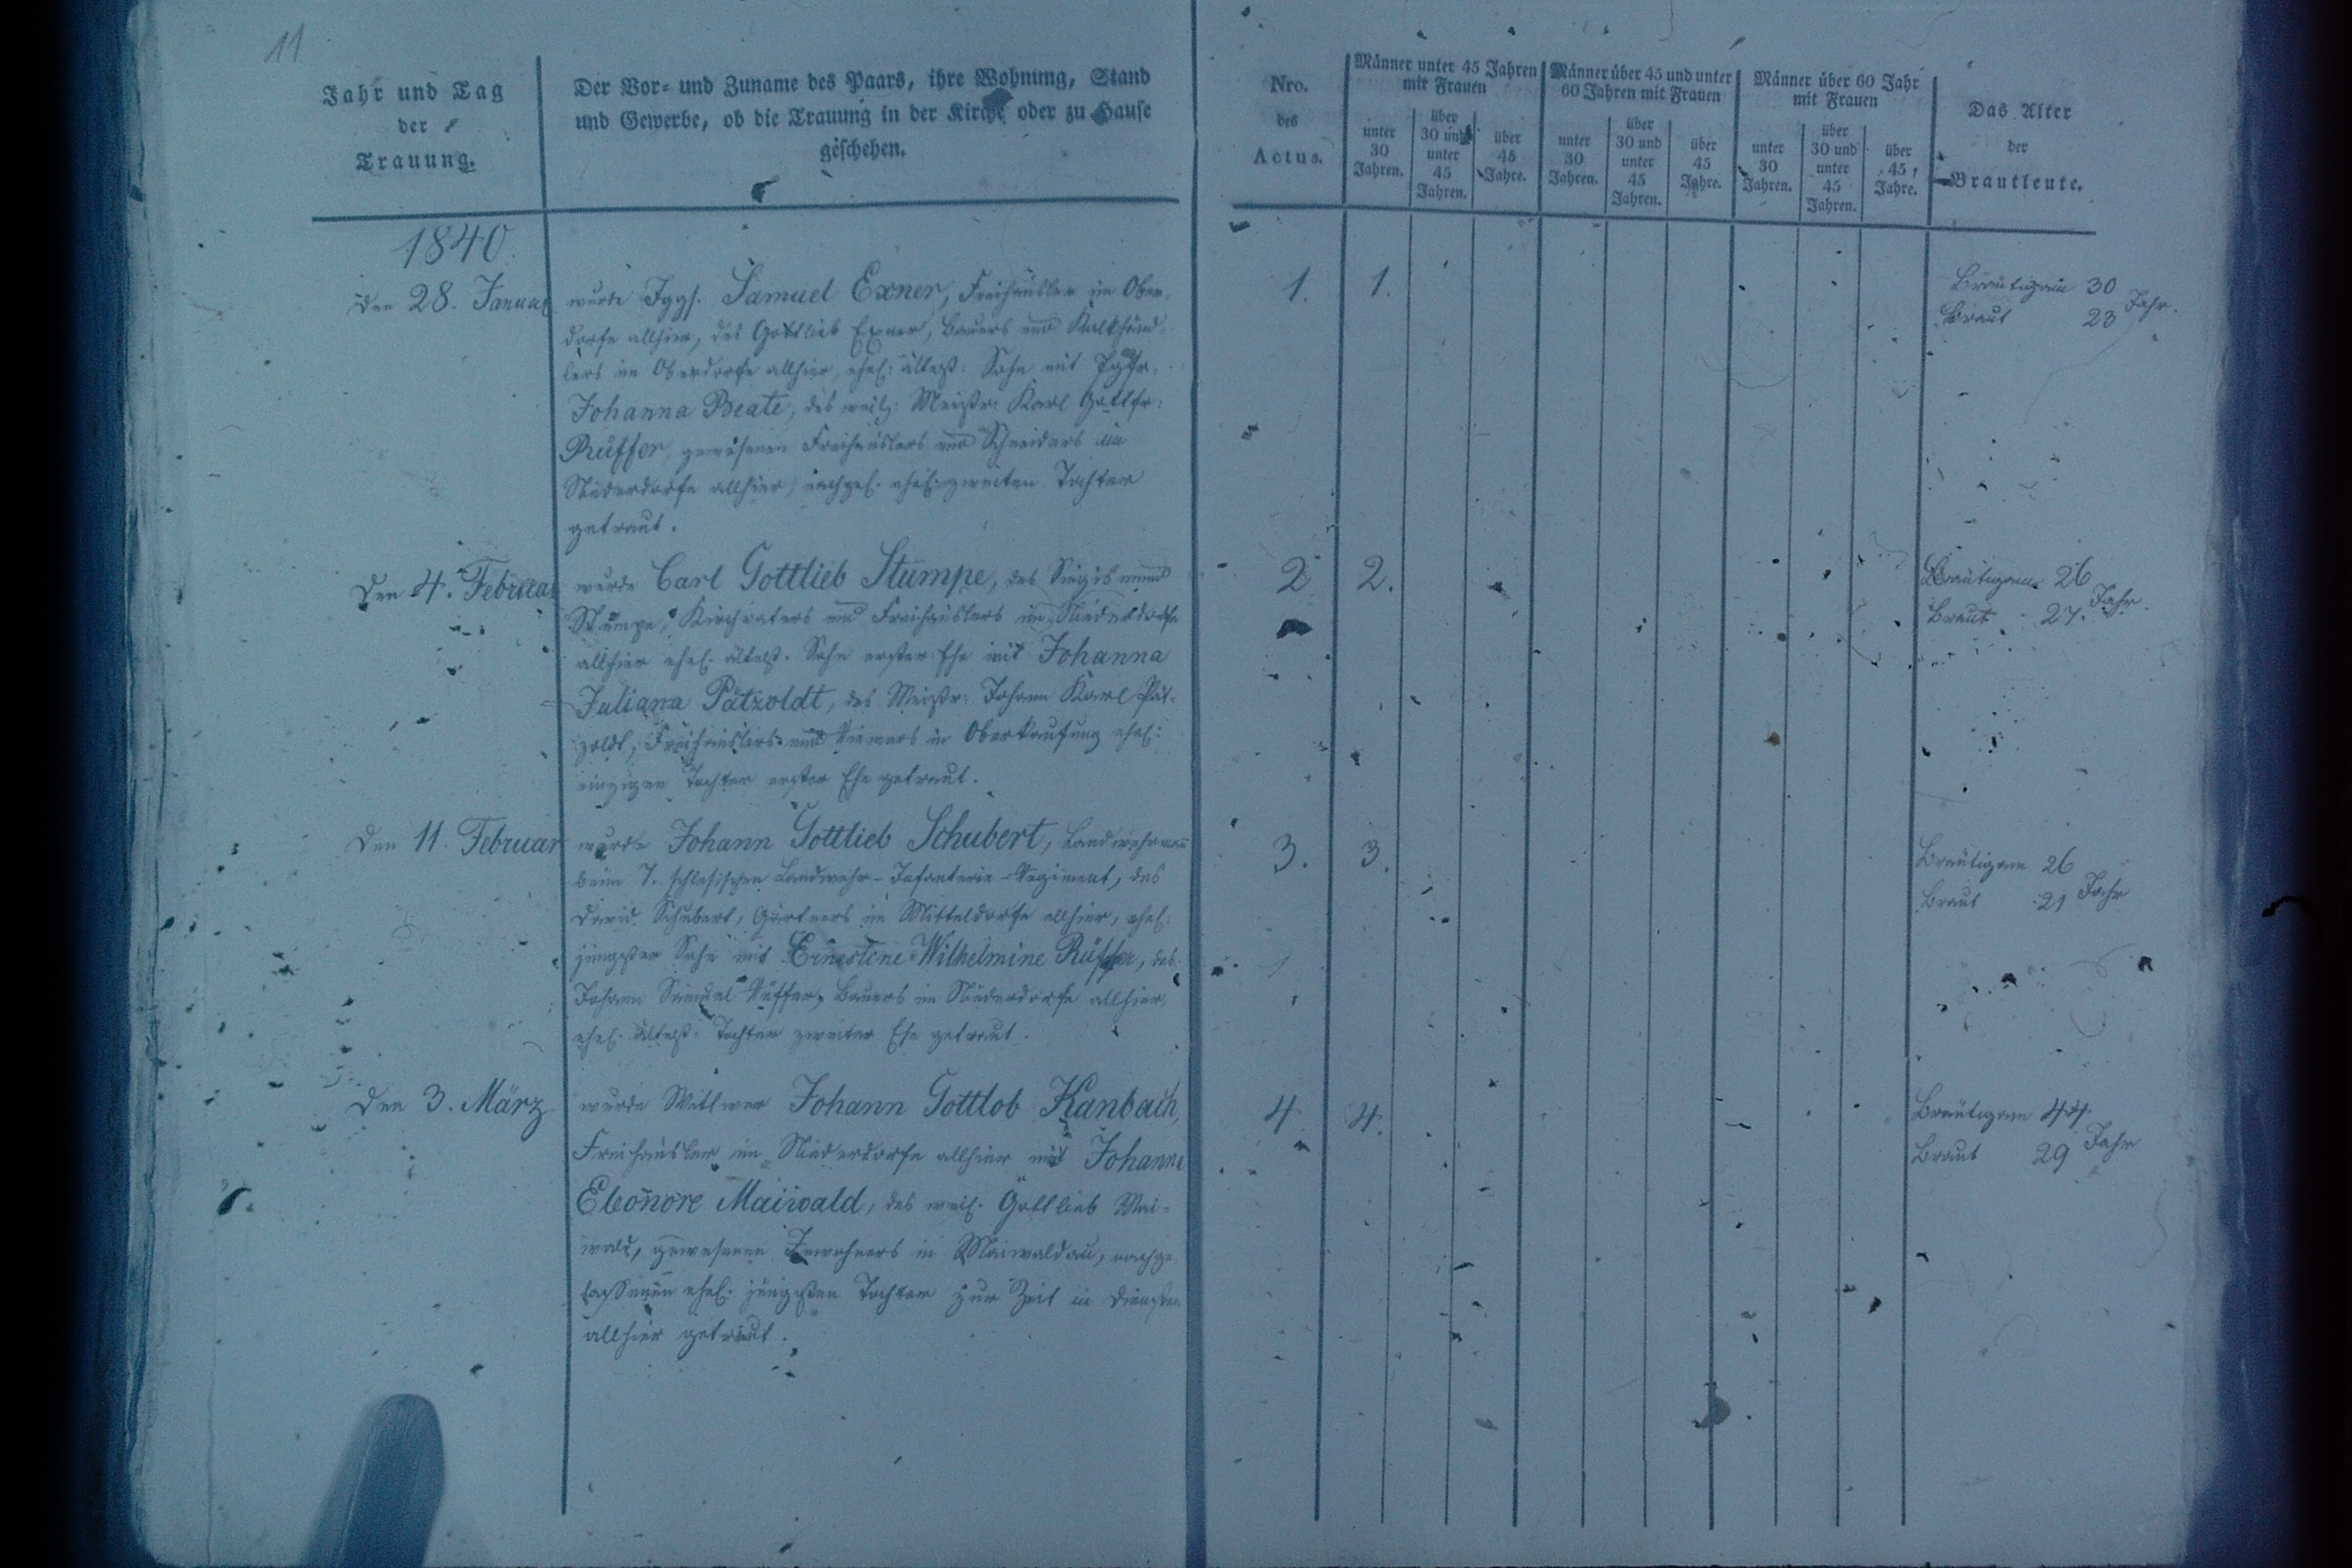 11
Jahr und Tag
der
Trauung.
Der Vor- und Zuname des Paars, ihre Wohnung, Stand
und Gewerbe, ob die Trauung in der Kirche oder zu Hause
geschehen.
Nro.
des
Actus.
Männer unter 45 Jahren
mit Frauen
unter
30
Jahren.
über
30 und
unter
45
Jahren.
über
45
Jahre.
Männer über 45 und unter
60 Jahren mit Frauen
unter
30
Jahren.
über
30 und
unter
45
Jahren.
über
45
Jahre.
Männer über 60 Jahr
mit Frauen
unter
30
Jahren.
über
30 und
unter
45
Jahren.
über
45
Jahre.
Das Alter
der
Brautleute.
1840.
Den 28. Januar
wurde Jggs. Samuel Exner, Freihäusler im Ober-
dorfe allhier, des Gottlieb Exner, Bauers und Kalkhänd-
lers im Oberdorfe allhier, ehel: ältest: Sohn mit Jgfr.
Johanna Beate, des weil: Meistr: Karl Gottfr:
Rüffer, gewesenen Freihäuslers und Schneiders im
Niederdorfe allhier, nachgel. ehel: zweiten Tochter
getraut.
1. 1.
Bräutigam 30
Braut 23 Jahr.
Den 4. Februar
wurde Carl Gottlieb Stumpe, des Siegismund
Stumpe, Kirchvaters und Freihäuslers im Niederdorfe
allhier ehel. ältest. Sohn erster Ehe mit Johanna
Juliana Pätzoldt, des Meistr: Johann Karl Pät-
zoldt, Freihäuslers und Riemers in Oberkaufung ehel:
einzigen Tochter erster Ehe getraut.
2 2.
Bräutigam 26
Braut 27. Jahr.
Den 11. Februar
wurde Johann Gottlieb Schubert, Landwehrmann
beim 7. schlesischen Landwehr-Infanterie-Regiment, des
David Schubert, Gärtners im Mitteldorfe allhier, ehel:
jüngster Sohn mit Ernestine Wilhelmine Rüffer, des
Johann Samuel Rüffer, Bauers im Niederdorfe allhier,
ehel. ältest: Tochter zweiter Ehe getraut.
3. 3.
Bräutigam 26
Braut 21 Jahr
Den 3. März
wurde Wittwer Johann Gottlob Kanbach,
Freihäusler im Niederdorfe allhier mit Johanne
Eleonore Maiwald, des weil. Gottlieb Mai-
wald, gewesenen Inwohners in Maiwaldau, nachge-
lassenen ehel. jüngsten Tochter zur Zeit in Diensten
allhier getraut.
4 4.
Bräutigam 44
Braut 29 Jahr